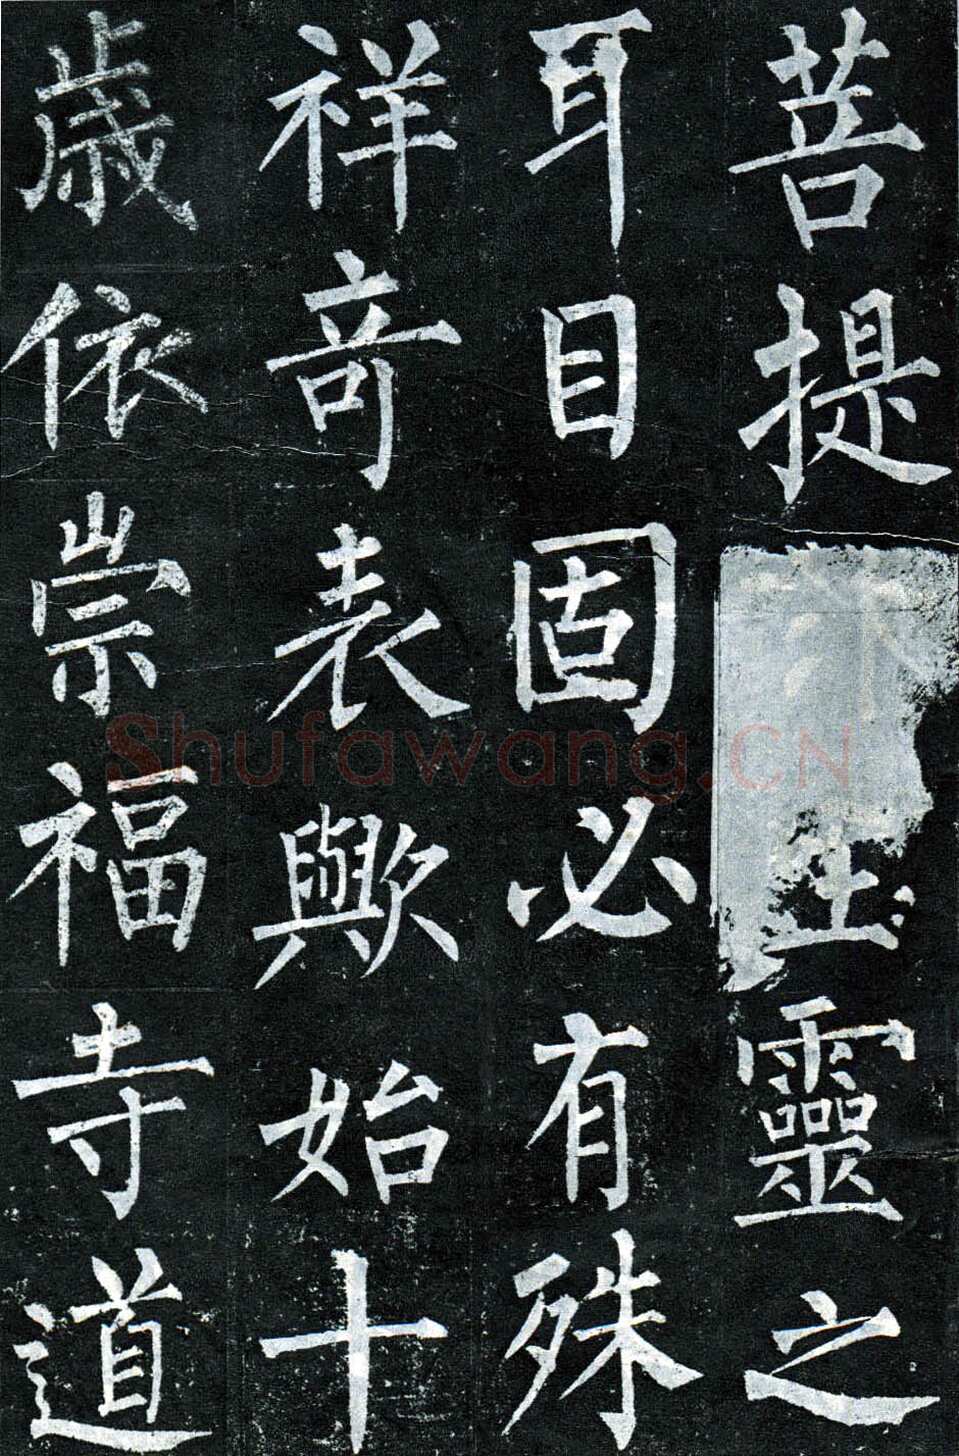 菩提靈之
耳目固必有殊
祥竒表歟始十
歳依崇福寺道
Shufawang.CN